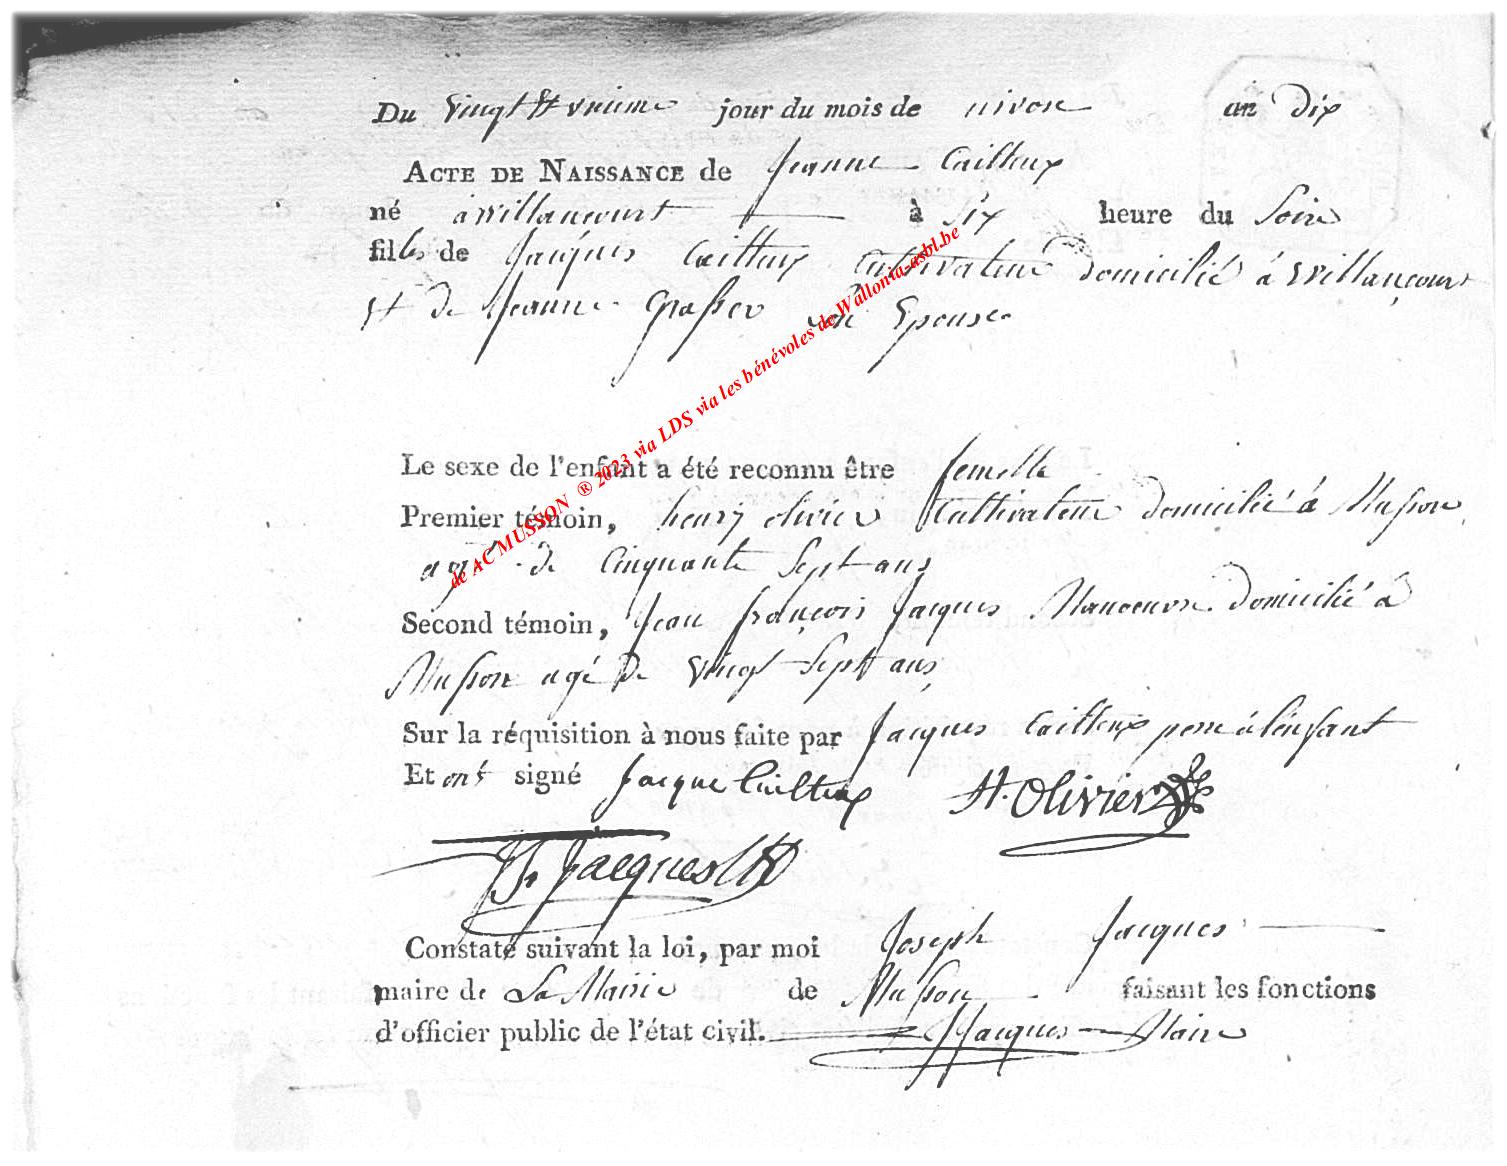 Du vingt et unieme jour du mois de nivose an dix
ACTE DE NAISSANCE de Jeanne Cailteux
né à Willancourt à six heure du Soire
filles de Jacques Cailteux Cultivateur domicilié à Willancourt
et de Jeanne Grasser son Epouse
Le sexe de l'enfant a été reconnu être femelle
Premier témoin, henry olivier Cultivateur domicilié à Musson
agé de Cinquante Sept ans
Second témoin, Jean françois Jacques Manoeuvre domicilié à
Musson agé de vingt Sept ans
Sur la réquisition à nous faite par Jacques Cailteux pere à l'enfant
Et ont signé Jacque Cailteux H. Olivier
J. f. Jacques
Constaté suivant la loi, par moi Joseph Jacques
maire de La Mairie de Musson faisant les fonctions
d'officier public de l'état civil. J Jacques Maire
de AC MUSSON ® 2023 via LDS via les bénévoles de Wallonia-asbl.be